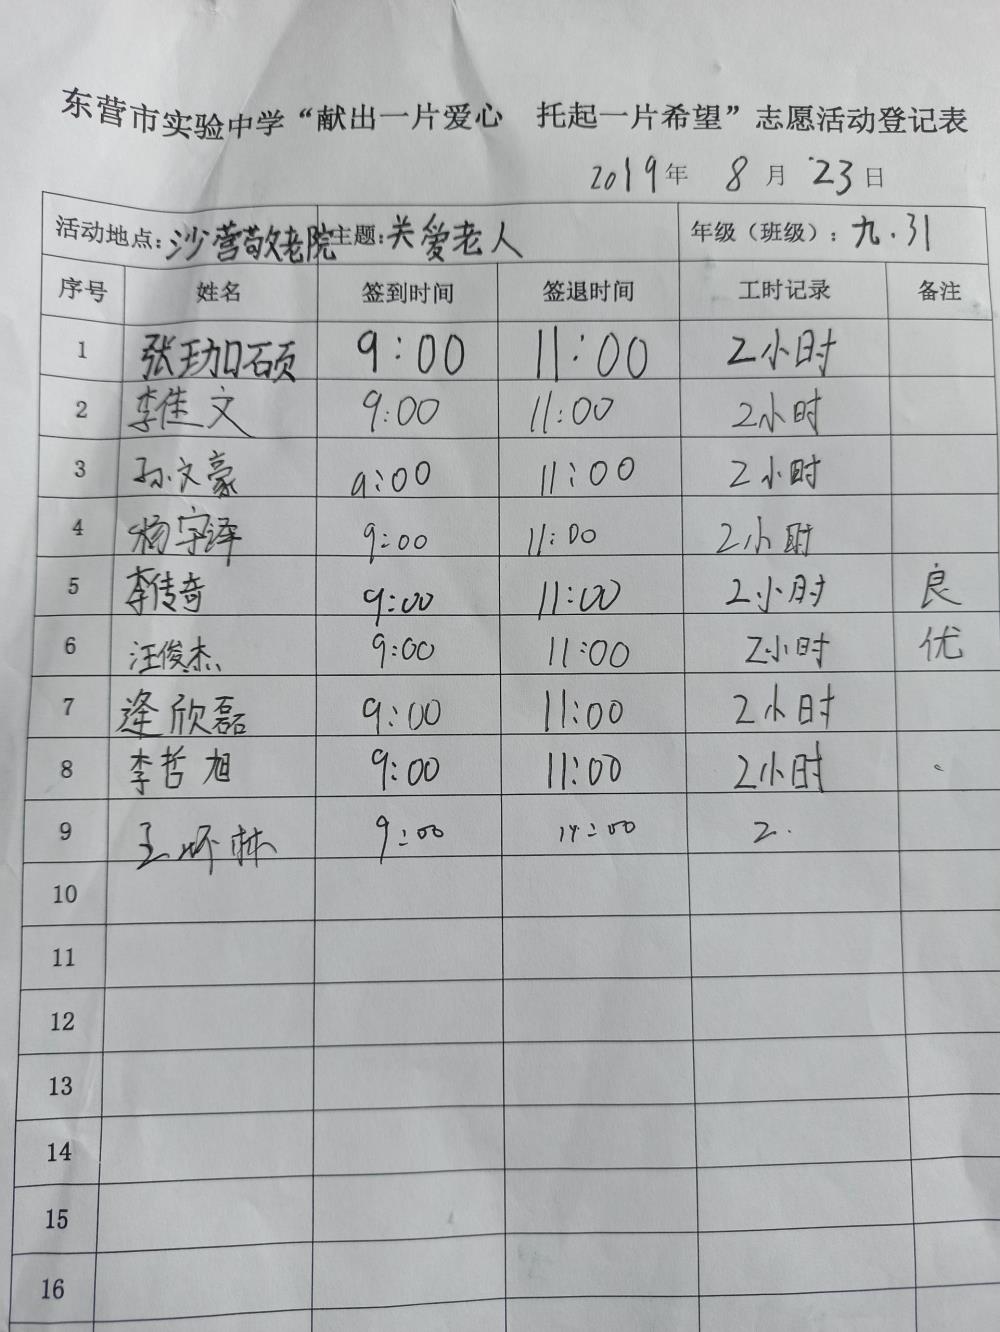 东营市实验中学“献出一片爱心 托起一片希望”志愿活动登记表
2019年 8月 23日
活动地点：沙营敬老院 主题：关爱老人 年级（班级）：九.31
序号 姓名 签到时间 签退时间 工时记录 备注
1 张珈硕 9:00 11:00 2小时
2 李佳文 9:00 11:00 2小时
3 孙文豪 9:00 11:00 2小时
4 杨宇译 9:00 11:00 2小时
5 李传奇 9:00 11:00 2小时 良
6 汪俊杰 9:00 11:00 2小时 优
7 逄欣磊 9:00 11:00 2小时
8 李哲旭 9:00 11:00 2小时
9 王怀林 9:00 :00 2.
10
11
12
13
14
15
16